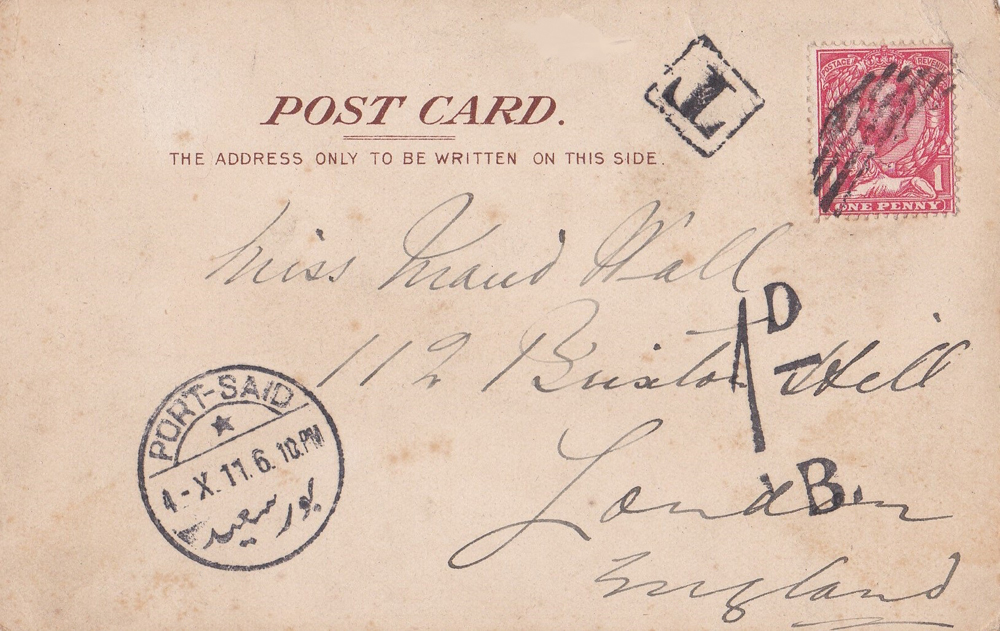 POST CARD.
THE ADDRESS ONLY TO BE WRITTEN ON THIS SIDE.
T
POSTAGE REVENUE
1
ONE PENNY
Miss Maud Wall
112 Brixton Hill
London
England
1D
B.
PORT-SAID
4-X.11.6.10.PM
بور سعيد